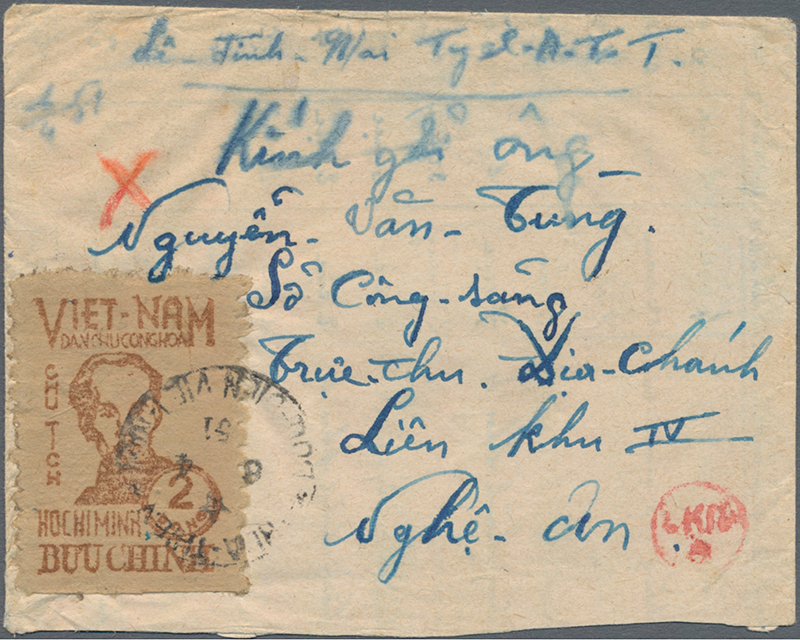 Lê - Tính - Mai Ty
Kính gởi ông
Nguyễn - Văn - Tùng.
Sở Công-sảng
Trực-thu. Địa-Chánh
Liên khu IV
Nghệ-An.
VIET-NAM
DAN CHU CONG HOA
CHU TCH
2
HO CHI MINH
BUU CHINH
8 4
51